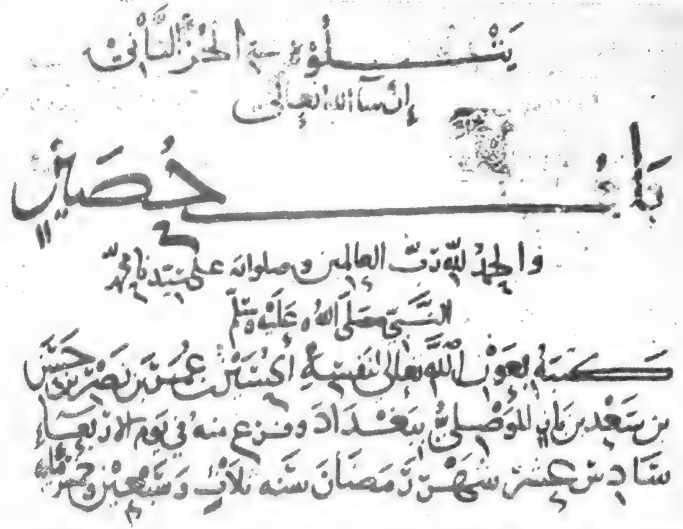 يتلوه في الجزء الثاني
إن شاء الله تعالى
باب حصين
والحمد لله رب العالمين وصلواته على سيدنا محمد
النبي صلى الله عليه وسلم
كتبه بعون الله تعالى لنفسه الحسين بن عمر بن نصر بن حسن
بن سعد بن باز الموصلي ببغداد وفرغ منه في يوم الاربعاء
سادس عشر شهر رمضان سنة ثلاث وسبعين وخمس مائة